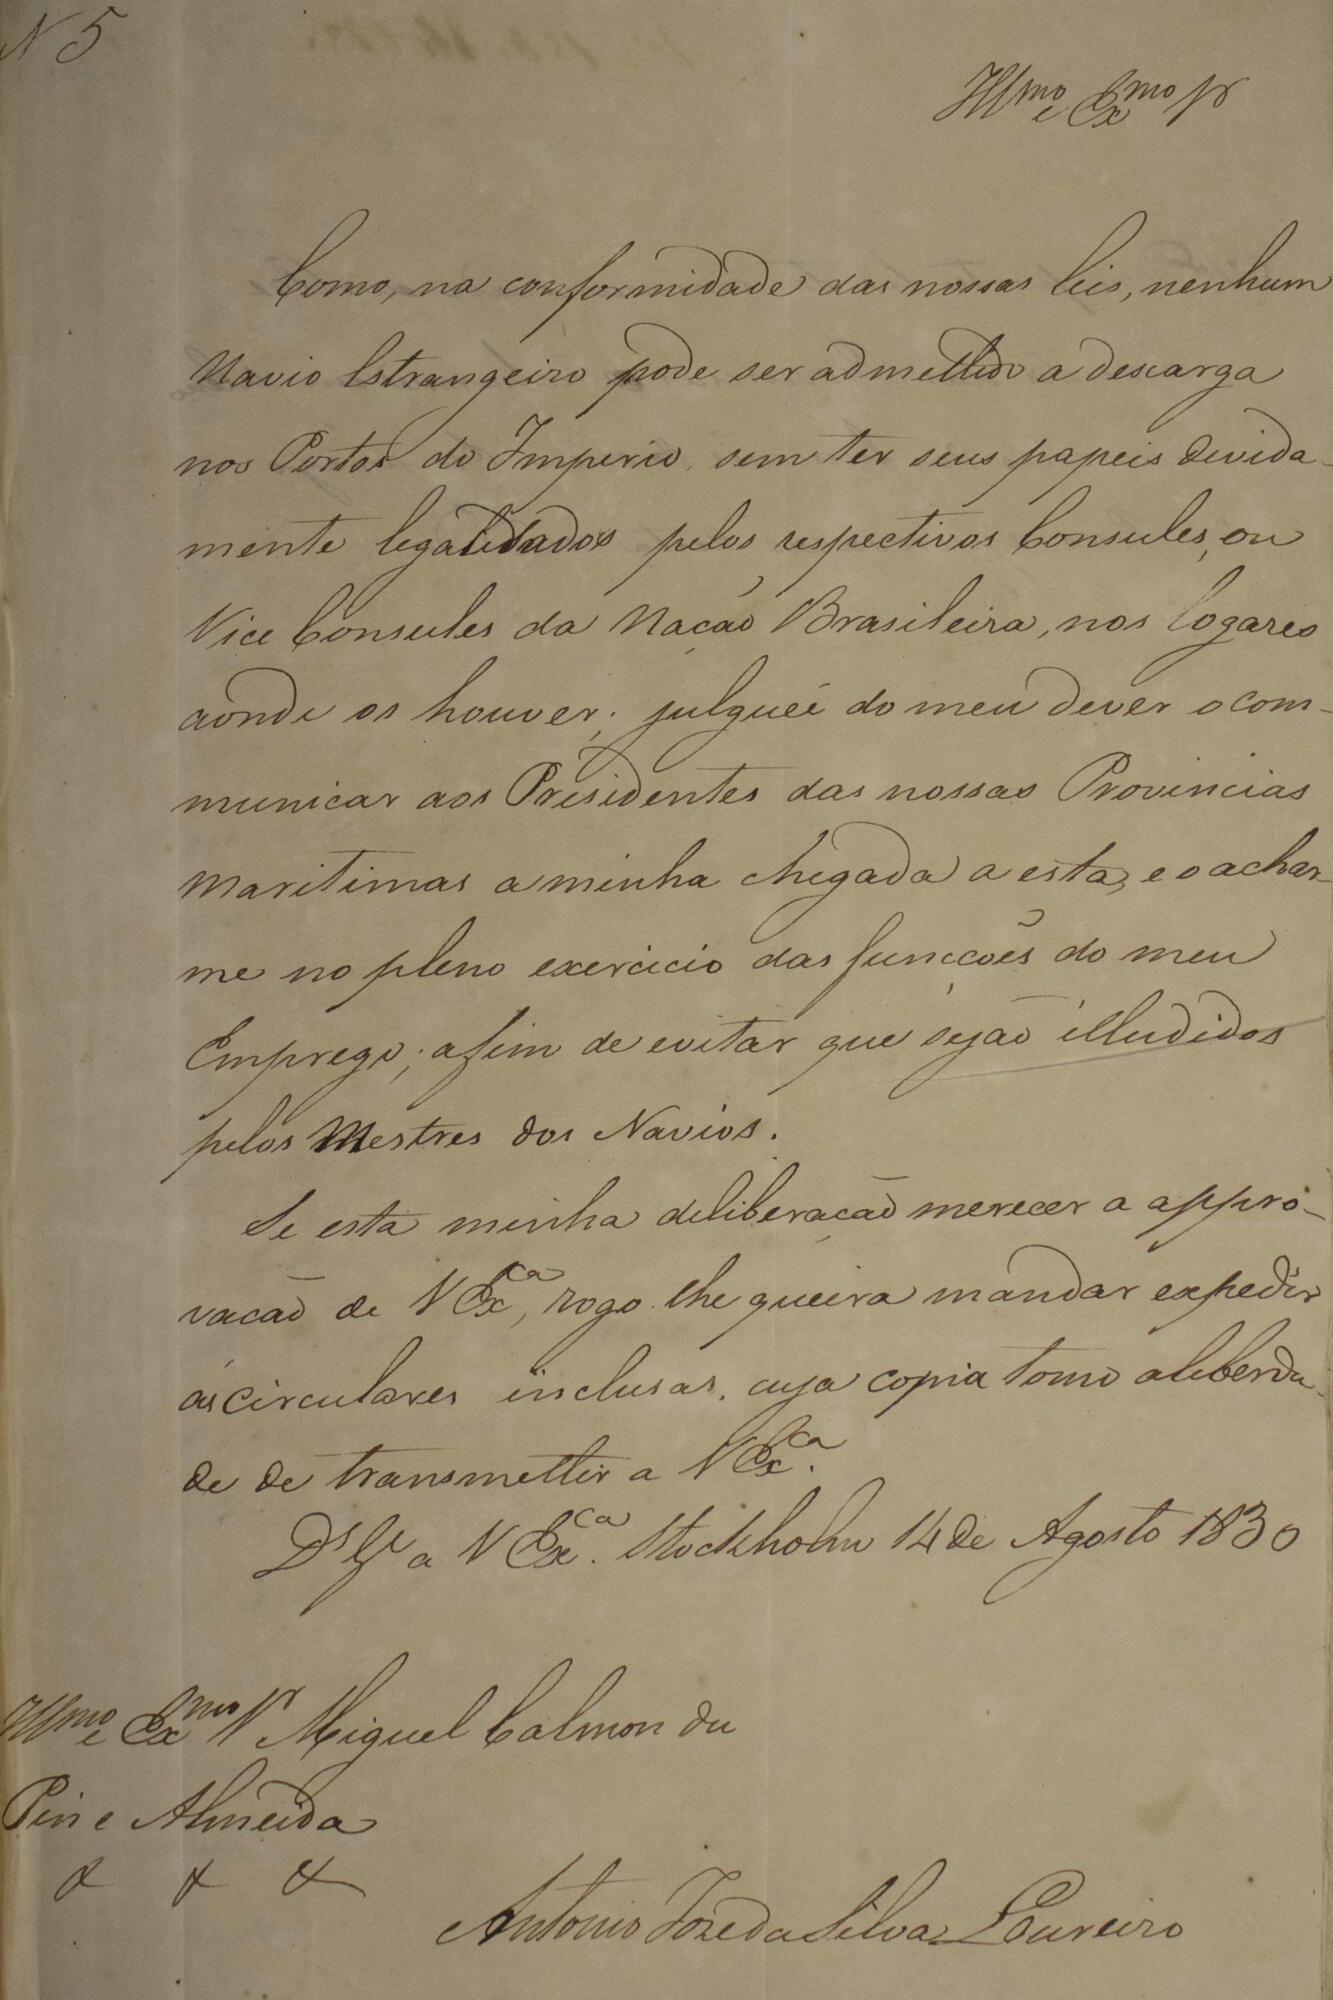 N 5
Illmo e Exmo Sr
Como, na conformidade das nossas leis, nenhum
Navio Estrangeiro pode ser admettido a descarga
nos Portos do Imperio, sem ter seus papeis divida-
mente legalisados pelos respectivos Consules, ou
Vice Consules da Nação Brasileira, nos logares
aonde os houver; julguei do meu dever o com-
municar aos Presidentes das nossas Provincias
Maritimas a minha chegada a esta, e o achar-
me no pleno exercicio das funcções do meu
Emprego; afim de evitar que sejão illudidos
pelos Mestres dos Navios.
Se esta minha deliberação merecer a appro-
vacão de V Exca, rogo lhe queira mandar expedir
as circulares inclusas, cuja copia tomo a liberda-
de de transmettir a V Exca.
Ds Ge a V Exca. Stockholm 14 de Agosto 1830
Illmo e Exmo Sr Miguel Calmon du
Pin e Almeida
& & &
Antonio Joze da Silva Loureiro